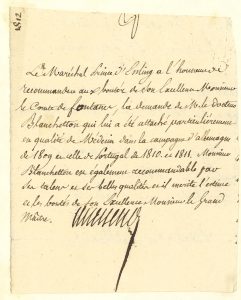 1812
Le Maréchal Prince d'Essling a l'honneur de
recommander aux bontés de Son Excellence Monsieur
le Comte de fontane, la demande de Mr le Docteur
Blancheton qui lui a été attaché particulièrement
en qualité de Médecin dans la campagne d'allemagne
de 1809 et celle de Portugal de 1810 et 1811. Monsieur
Blancheton est également recommandable par
ses talens et ses belles qualités et il mérite l'estime
et les bontés de Son Excellence Monsieur le Grand
Maître.